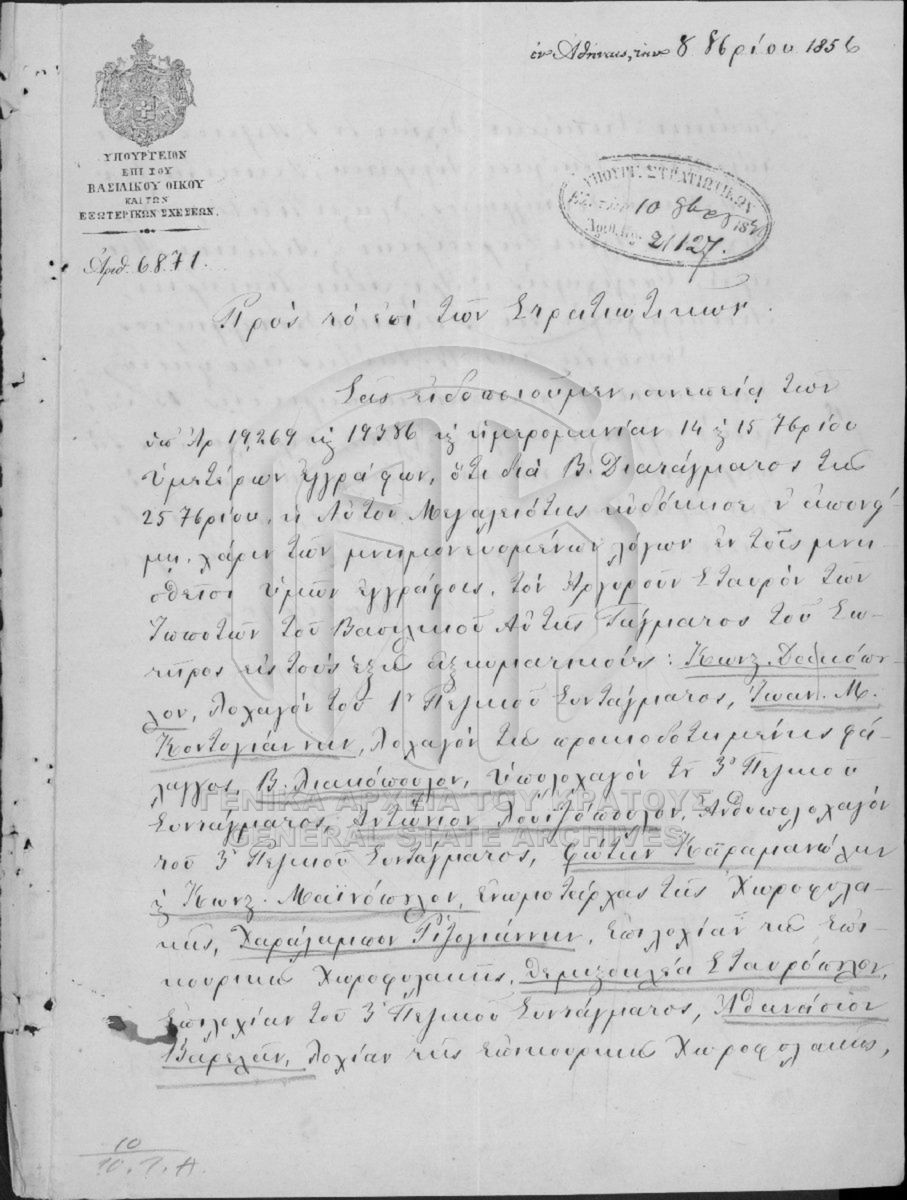 ἐν Ἀθήναις, τὴν 8 8βρίου 1856
ΥΠΟΥΡΓΕΙΟΝ
ΕΠΙ ΤΟΥ
ΒΑΣΙΛΙΚΟΥ ΟΙΚΟΥ
ΚΑΙ ΤΩΝ
ΕΞΩΤΕΡΙΚΩΝ ΣΧΕΣΕΩΝ.
ΥΠΟΥΡΓ. ΣΤΡΑΤΙΩΤΙΚΩΝ
10 8βρ 185
Ἀριθ. 21127.
Ἀριθ. 6871.
Πρὸς τὸ ἐπὶ τῶν Στρατιωτικῶν.
Σᾶς εἰδοποιοῦμεν, συνεπείᾳ τῶν
ὑπ' Ἀρ 19,269 καὶ 19386 καὶ ἡμερομηνίαν 14 καὶ 15 7βρίου
ὑμετέρων ἐγγράφων, ὅτι διὰ Β. Διατάγματος τῆς
25 7βρίου, ἡ Αὐτοῦ Μεγαλειότης εὐδόκησε ν' ἀπονεί-
μῃ, χάριν τῶν μνημονευομένων λόγων ἐν τοῖς μνη-
σθεῖσι ὑμῶν ἐγγράφοις, τὸν Ἀργυροῦν Σταυρὸν τῶν
Ἱπποτῶν τοῦ Βασιλικοῦ Αὐτῆς Τάγματος τοῦ Σω-
τῆρος εἰς τοὺς ἑξῆς ἀξιωματικούς: Κωνς.
λον, Λοχαγὸν τοῦ 1ου Πεζικοῦ Συντάγματος, Ἰωαν. Μ.
Κοντογιάννην, Λοχαγὸν τῆς προικοδοτημένης φά-
λαγγος, Β. Λιακόπουλον, ὑπολοχαγὸν τοῦ 3ου Πεζικοῦ
Συντάγματος, Ἀντώνιον Λουιζόπουλον, Ἀνθυπολοχαγὸν
τοῦ 3ου Πεζικοῦ Συντάγματος, Φώτιν Καραμανώλην
καὶ Κωνς. Μαϊνόπουλον, ἐνωμοτάρχας τῆς Χωροφυλα-
κῆς, Χαράλαμπον Ριζογιάννην, Ἐπιλοχίαν τῆς Ἐπι-
κουρικῆς Χωροφυλακῆς, Θεμιστοκλέα Σταυρόπουλον,
Ἐπιλοχίαν τοῦ 3ου Πεζικοῦ Συντάγματος, Ἀθανάσιον
Βαρελᾶν, Λοχίαν τῆς ἐπικουρικῆς Χωροφυλακῆς,
ΓΕΝΙΚΑ ΑΡΧΕΙΑ ΤΟΥ ΚΡΑΤΟΥΣ
GENERAL STATE ARCHIVES
10